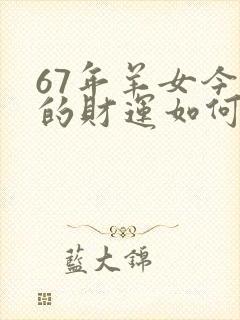 67年羊女今
的財運如何
藍大錦